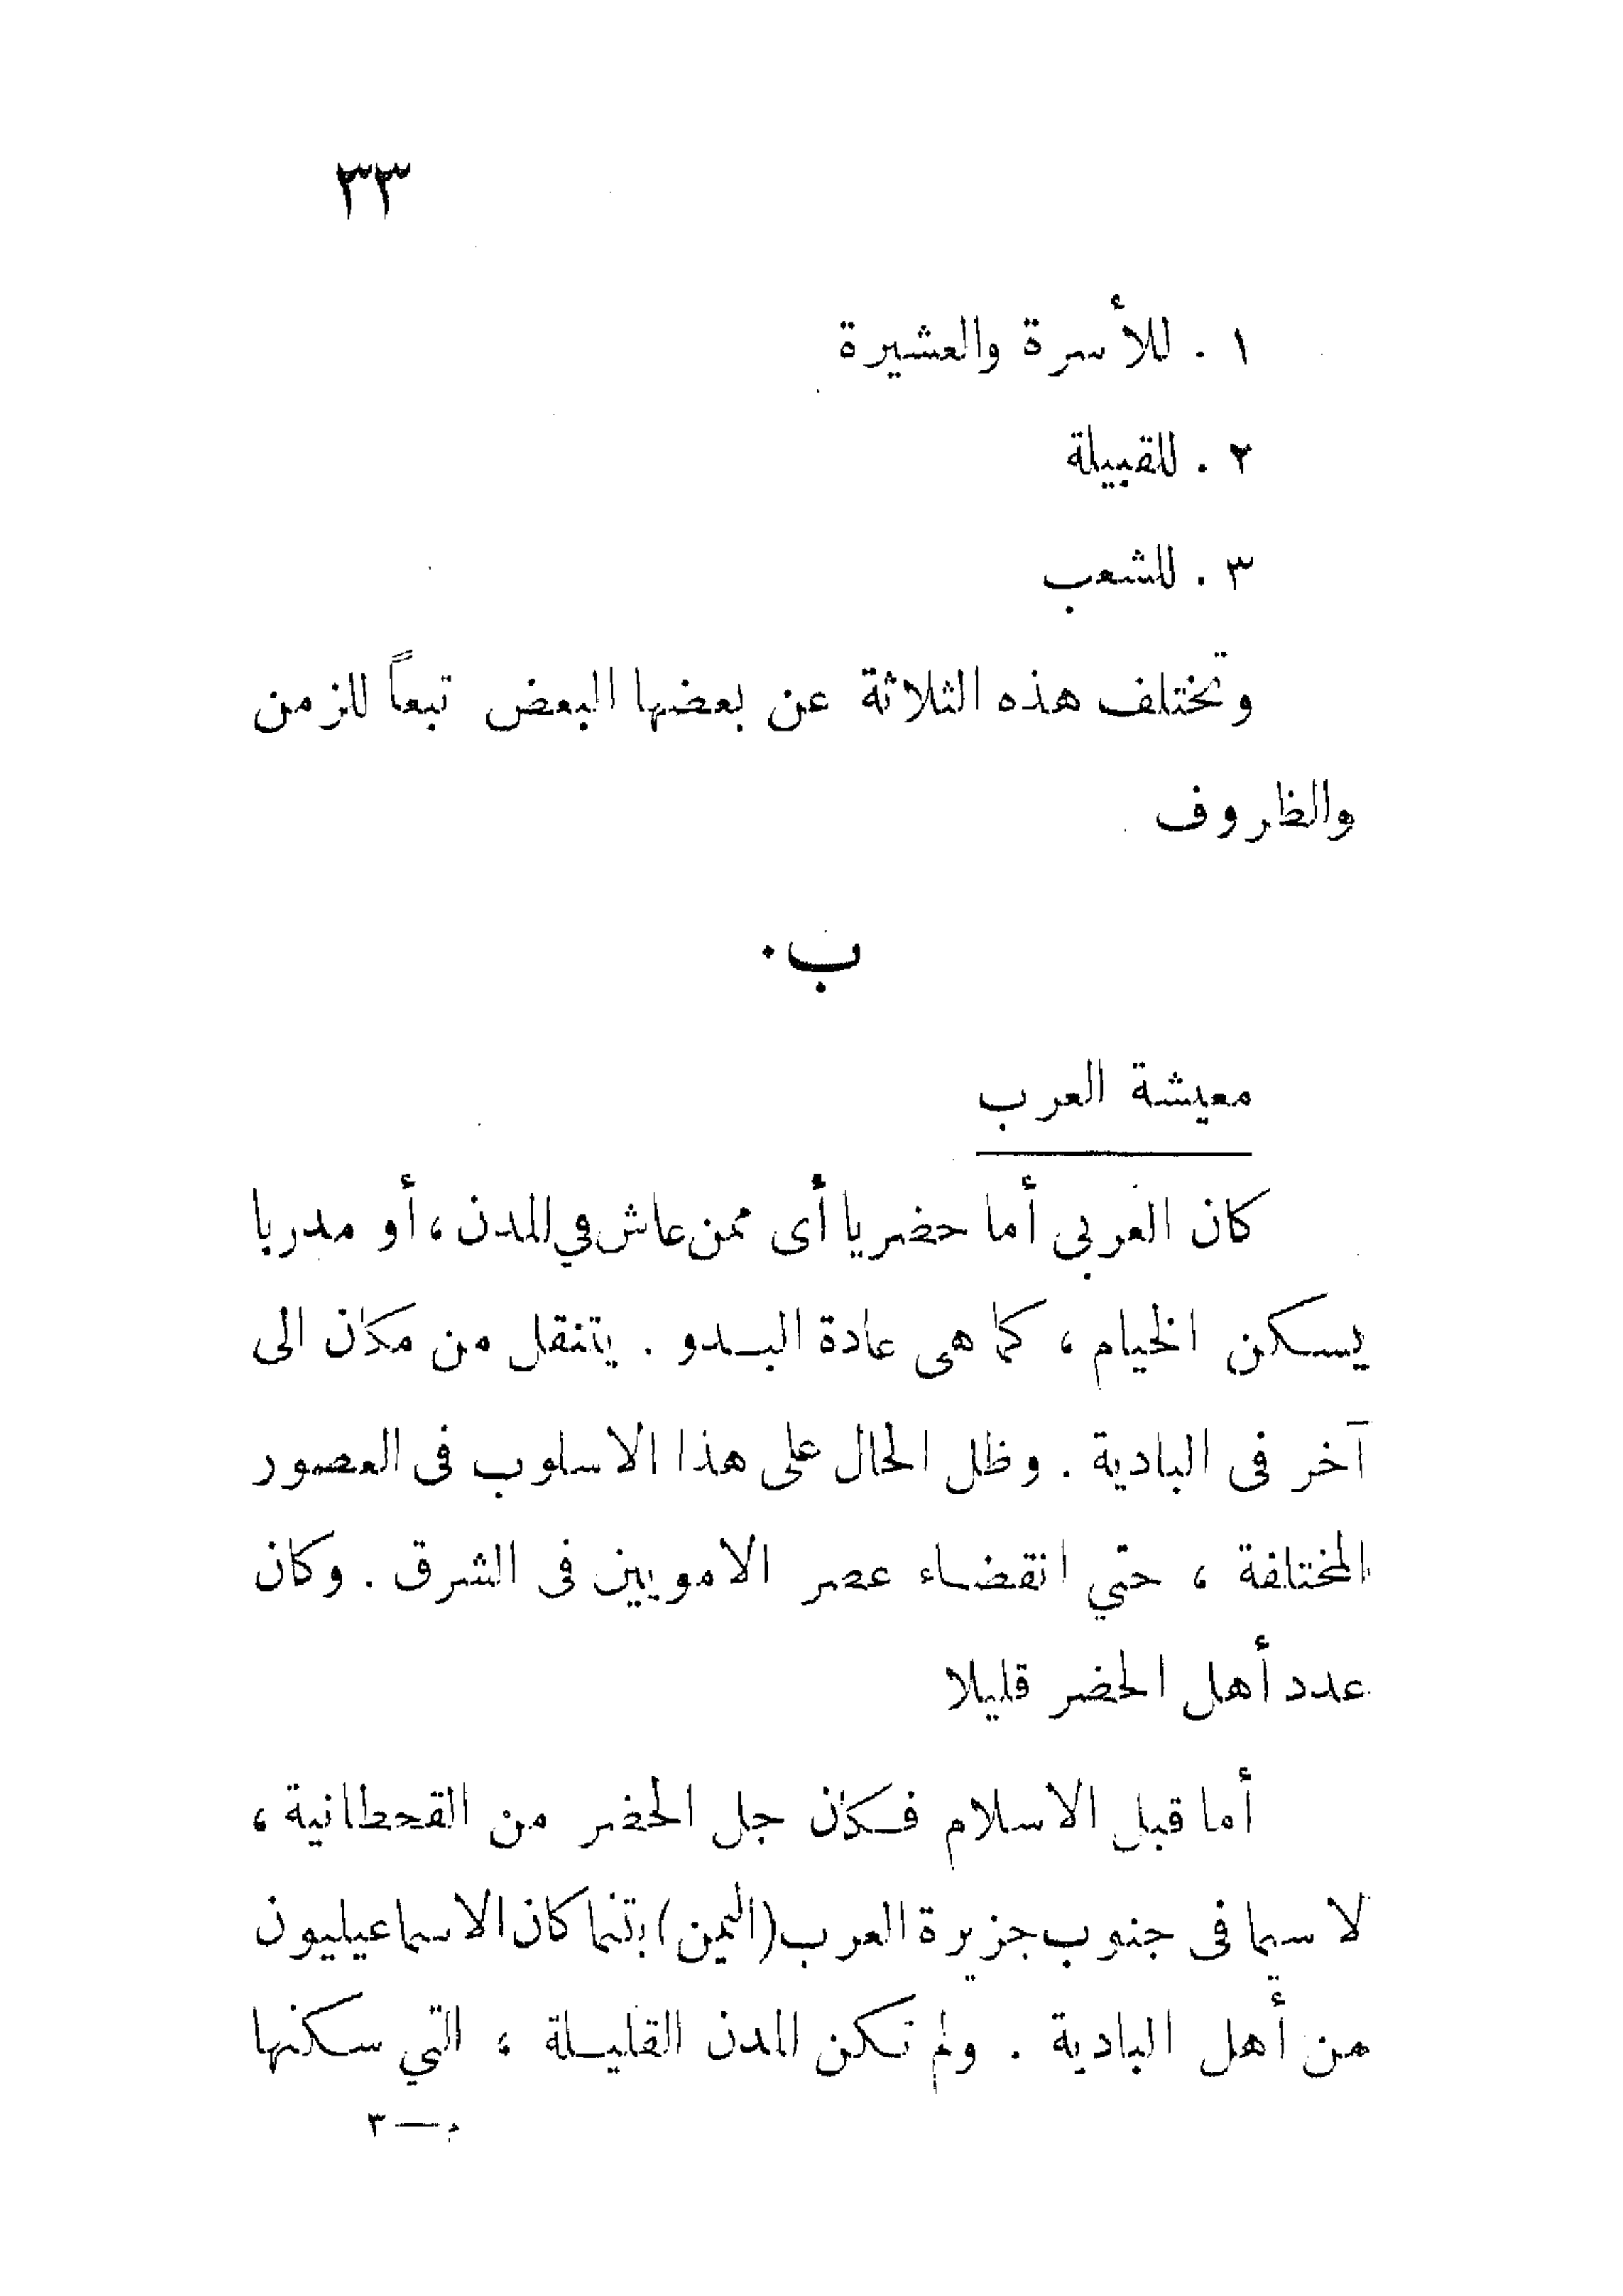 ٣٣
١ . للأسرة والعشيرة
٢ . للقبيلة
٣ . للشعب
وتختلف هذه الثلاثة عن بعضها البعض تبعاً للزمن
والظروف
ب .
معيشة العرب
كان العربي أما حضريا أى ممن عاش في المدن ، أو مدريا
يسكن الخيام ، كما هى عادة البدو . يتنقل من مكان الى
آخر فى البادية . وظل الحال على هذا الاسلوب فى العصور
المختلفة ، حتي انقضاء عصر الامويين فى الشرق . وكان
عدد أهل الحضر قليلا
أما قبل الاسلام فكان جل الحضر من القحطانية ،
لا سيما فى جنوب جزيرة العرب (اليمن) بينما كان الاسماعيليون
من أهل البادية . ولم تكن المدن القليلة ، التي سكنها
م — ٣